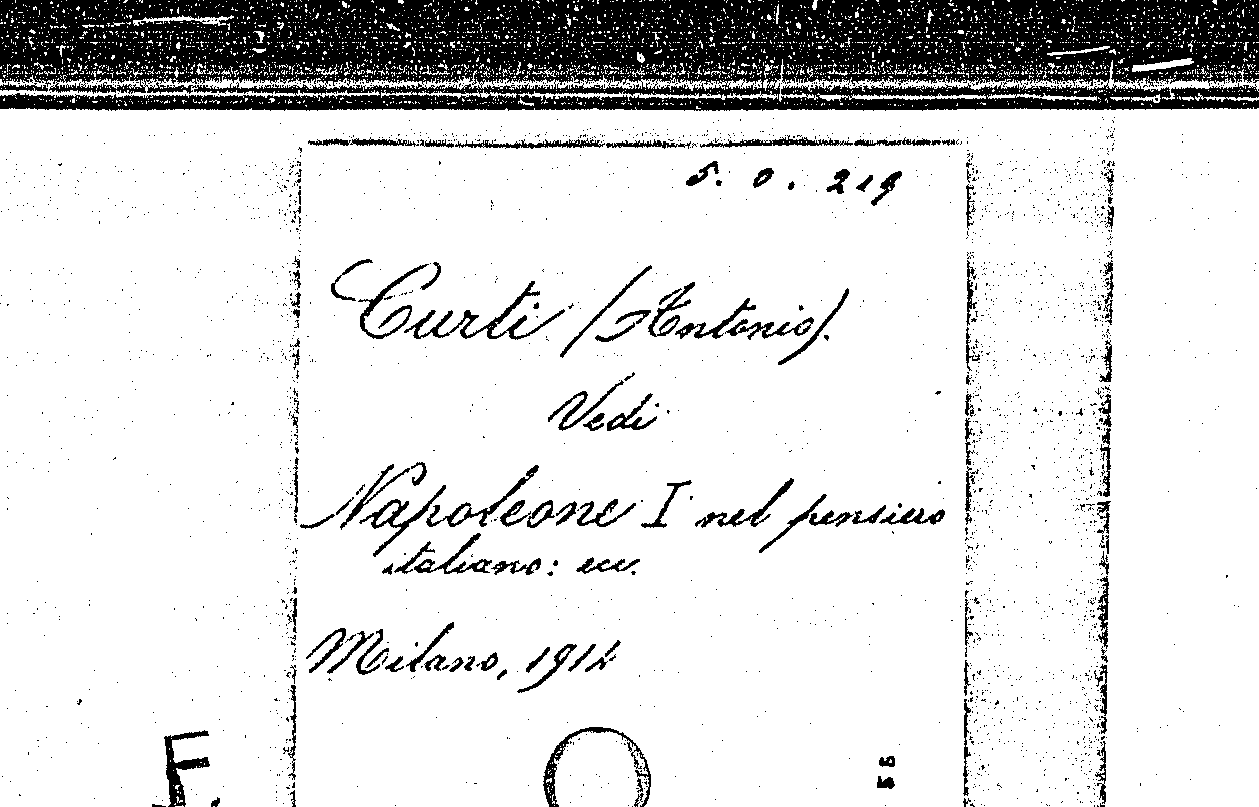 5. 0. 219
Curti (Antonio).
Vedi
Napoleone I nel pensiero
italiano: ecc.
Milano, 1914
F.
55